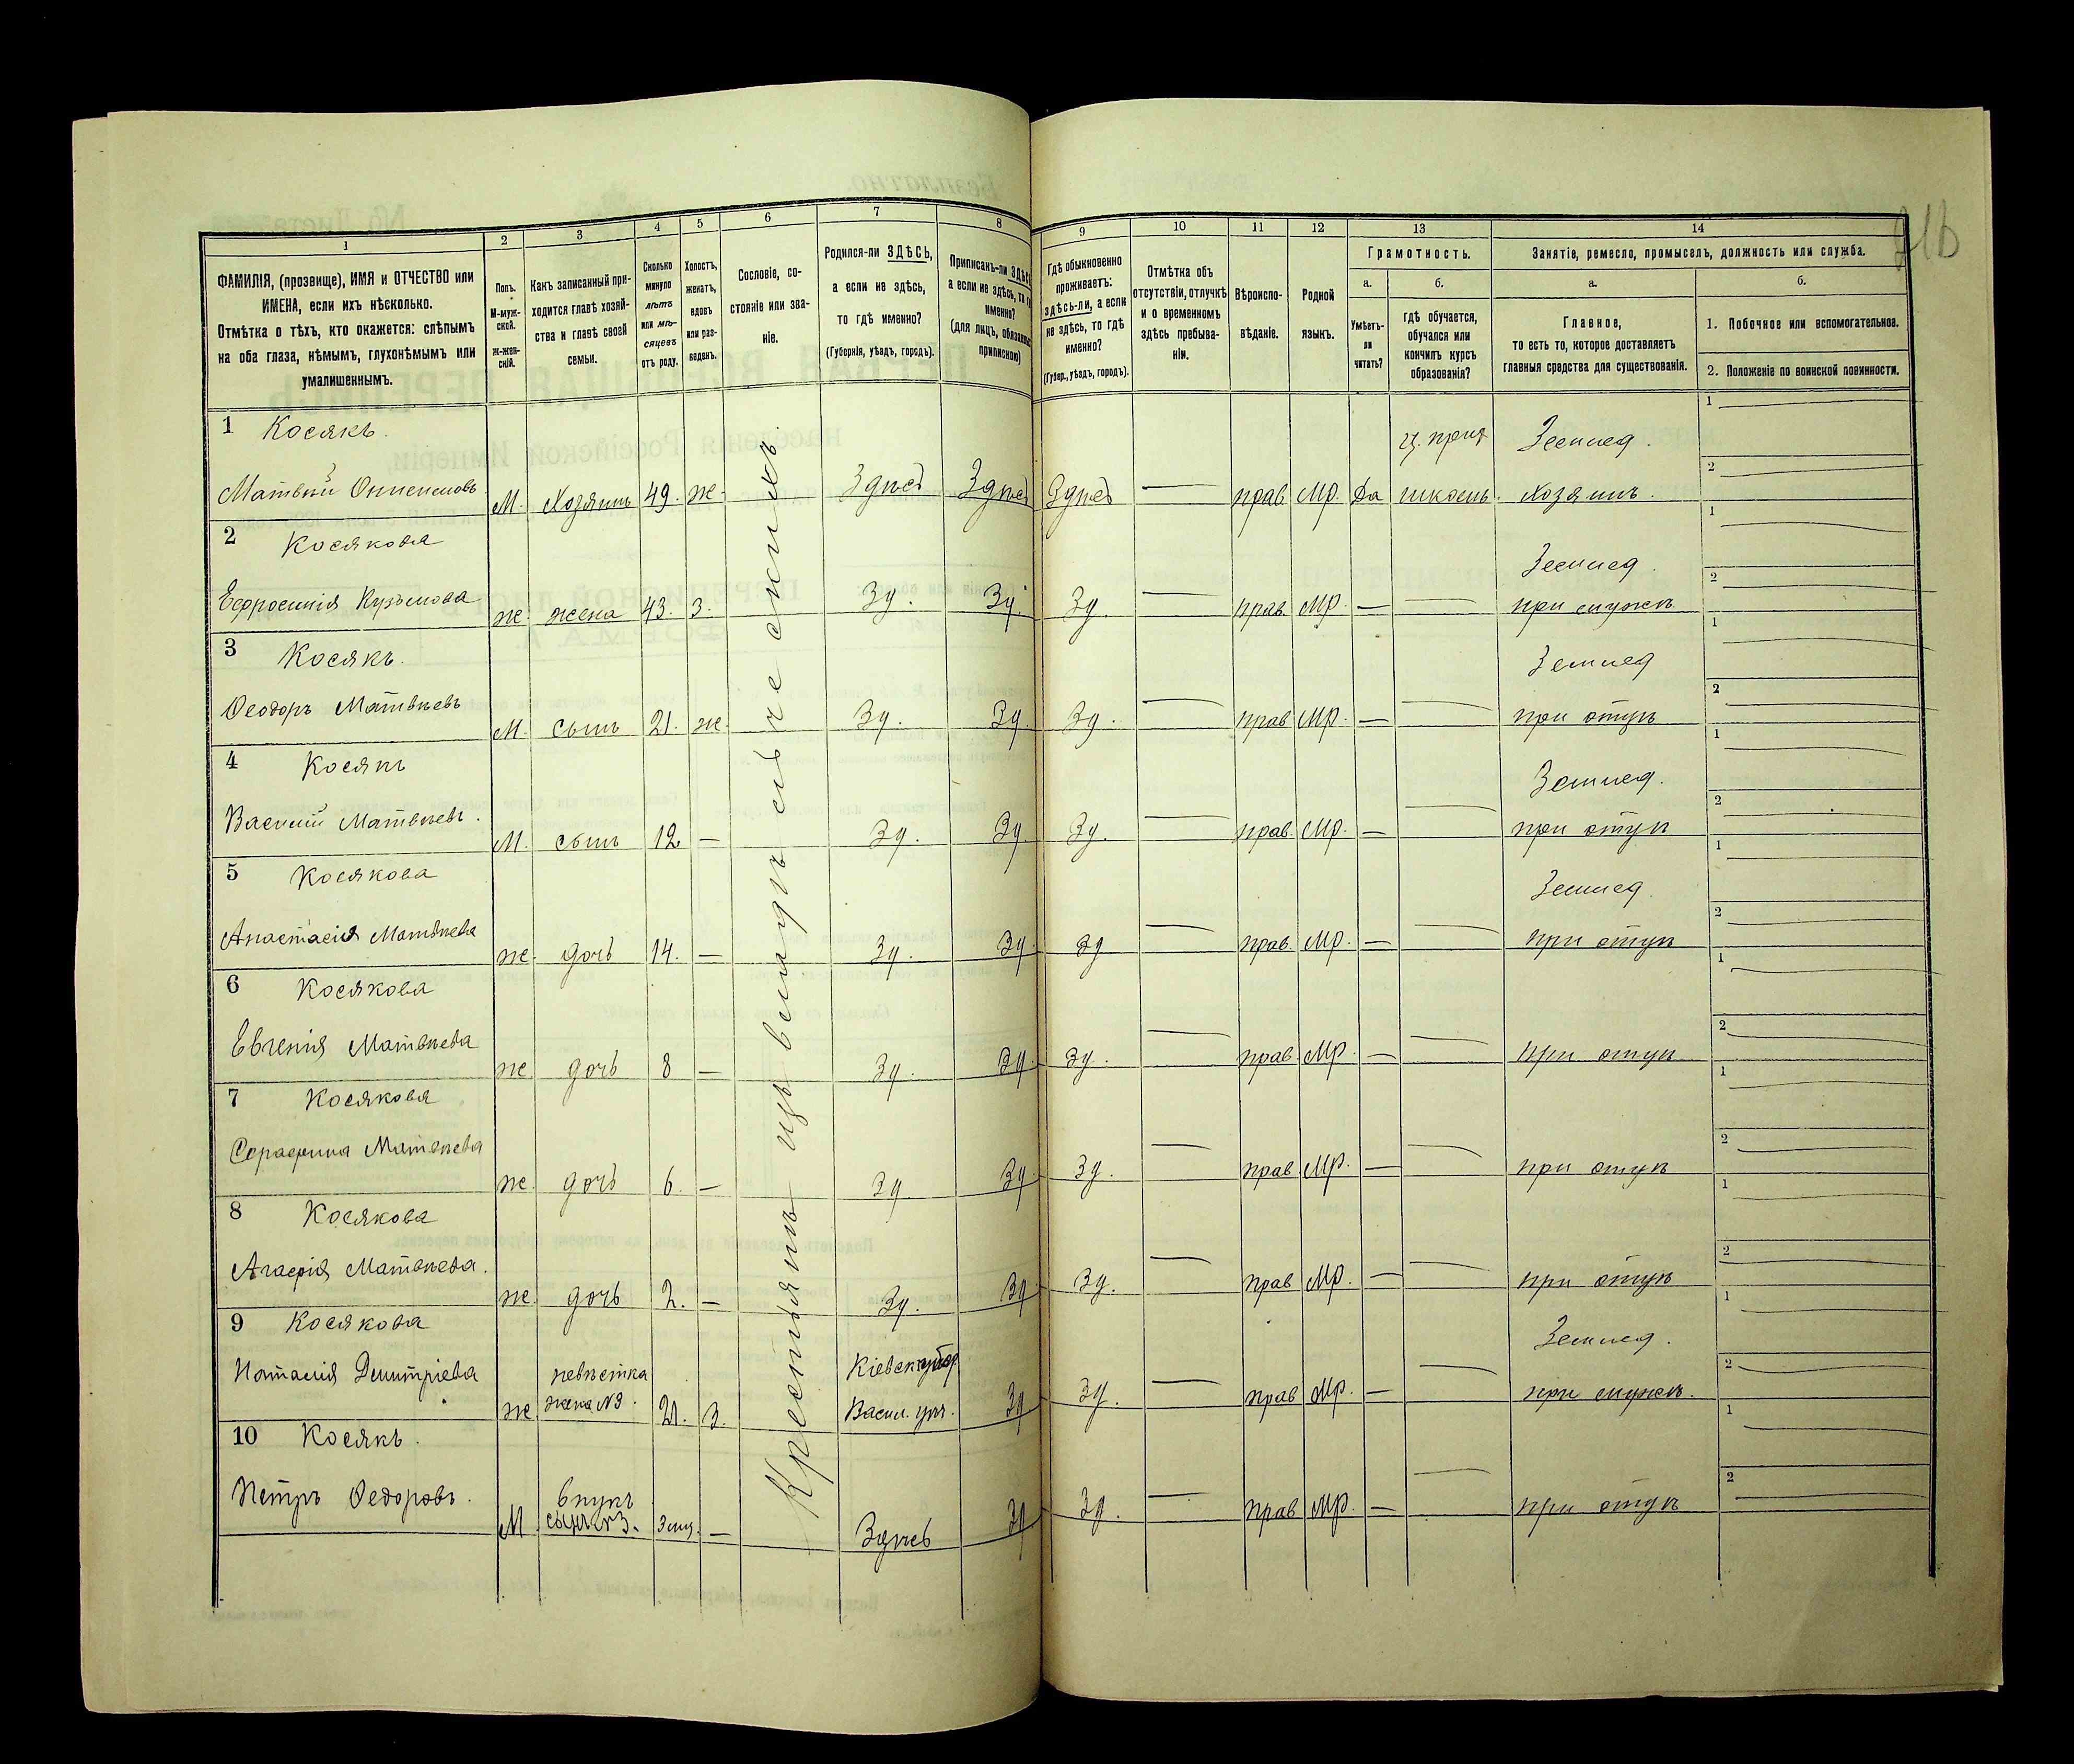 1
ФАМИЛІЯ, (прозвище), ИМЯ и ОТЧЕСТВО или
ИМЕНА, если ихъ нѣсколько.
Отмѣтка о тѣхъ, кто окажется: слѣпымъ
на оба глаза, нѣмымъ, глухонѣмымъ или
умалишеннымъ.
2
Полъ.
М-муж-
ской.
Ж-жен-
скій.
3
Какъ записанный при-
ходится главѣ хозяй-
ства и главѣ своей
семьи.
4
Сколько
минуло
лѣтъ
или мѣ-
сяцевъ
отъ роду.
5
Холостъ,
женатъ,
вдовъ
или раз-
веденъ.
6
Сословіе, со-
стояніе или зва-
ніе.
7
Родился-ли ЗДѢСЬ,
а если не здѣсь,
то гдѣ именно?
(Губернія, уѣздъ, городъ).
8
Приписанъ-ли ЗДѢСЬ
а если не здѣсь, то
именно?
(для лицъ, обязан
припискою)
9
Гдѣ обыкновенно
проживаетъ:
здѣсь-ли, а если
не здѣсь, то гдѣ
именно?
(Губер., уѣздъ, городъ).
10
Отмѣтка объ
отсутствіи, отлучкѣ
и о временномъ
здѣсь пребыва-
ніи.
11
Вѣроиспо-
вѣданіе.
12
Родной
языкъ.
13
Грамотность.
а.
Умѣетъ-
ли
читать?
б.
гдѣ обучается,
обучался или
кончилъ курсъ
образованія?
14
Занятіе, ремесло, промыселъ, должность или служба.
а.
Главное,
то есть то, которое доставляетъ
главныя средства для существованія.
б.
1. Побочное или вспомогательное.
2. Положеніе по воинской повинности.
Крестьянъ изъ владѣльческихъ
1 Косякъ. Землед. 1
Матвѣй М. Хозяинъ 49. ж. Здѣсь Здѣсь Здѣсь — прав. Мр. Да школѣ. хозяинъ. 2
2 Косякова Землед. 1
Ефросинія Кузьмова ж. жена 43. З. Зд. Зд. Зд. — прав. Мр. — — при мужѣ 2
3 Косякъ. Землед 1
Ѳеодоръ Матвѣевъ М. сынъ 21. ж. Зд. Зд. Зд. — прав. Мр. — — при отцѣ 2
4 Косякъ Землед. 1
Василій Матвѣевъ. М. сынъ 12 — Зд. Зд. Зд. — прав. Мр. — — при отцѣ 2
5 Косякова Землед. 1
Анастасія Матвѣева ж. дочь 14. — Зд. Зд. Зд — прав. Мр. — — при отцѣ 2
6 Косякова 1
Евгенія Матвѣева ж. дочь 8 — Зд. Зд. Зд. — прав. Мр. — — при отцѣ 2
7 Косякова 1
Серафима Матвѣева ж. дочь 6. — Зд. Зд. Зд. — прав. Мр. — — при отцѣ 2
8 Косякова 1
Агафія Матвѣева. ж. дочь 2. — Зд. Зд. Зд. — прав. Мр. — — при отцѣ 2
9 Косякова Землед. 1
Наталія Дмитріева невѣстка Кіевск губер
ж. жена №3. 21. З. Васил. уѣз. Зд. Зд. — прав. Мр. — — при мужѣ. 2
10 Косякъ. 1
Петръ Ѳедоровъ. внукъ
М. сынъ №3. 3 мц. — Здѣсь Зд. Зд. — прав. Мр. — — при отцѣ 2